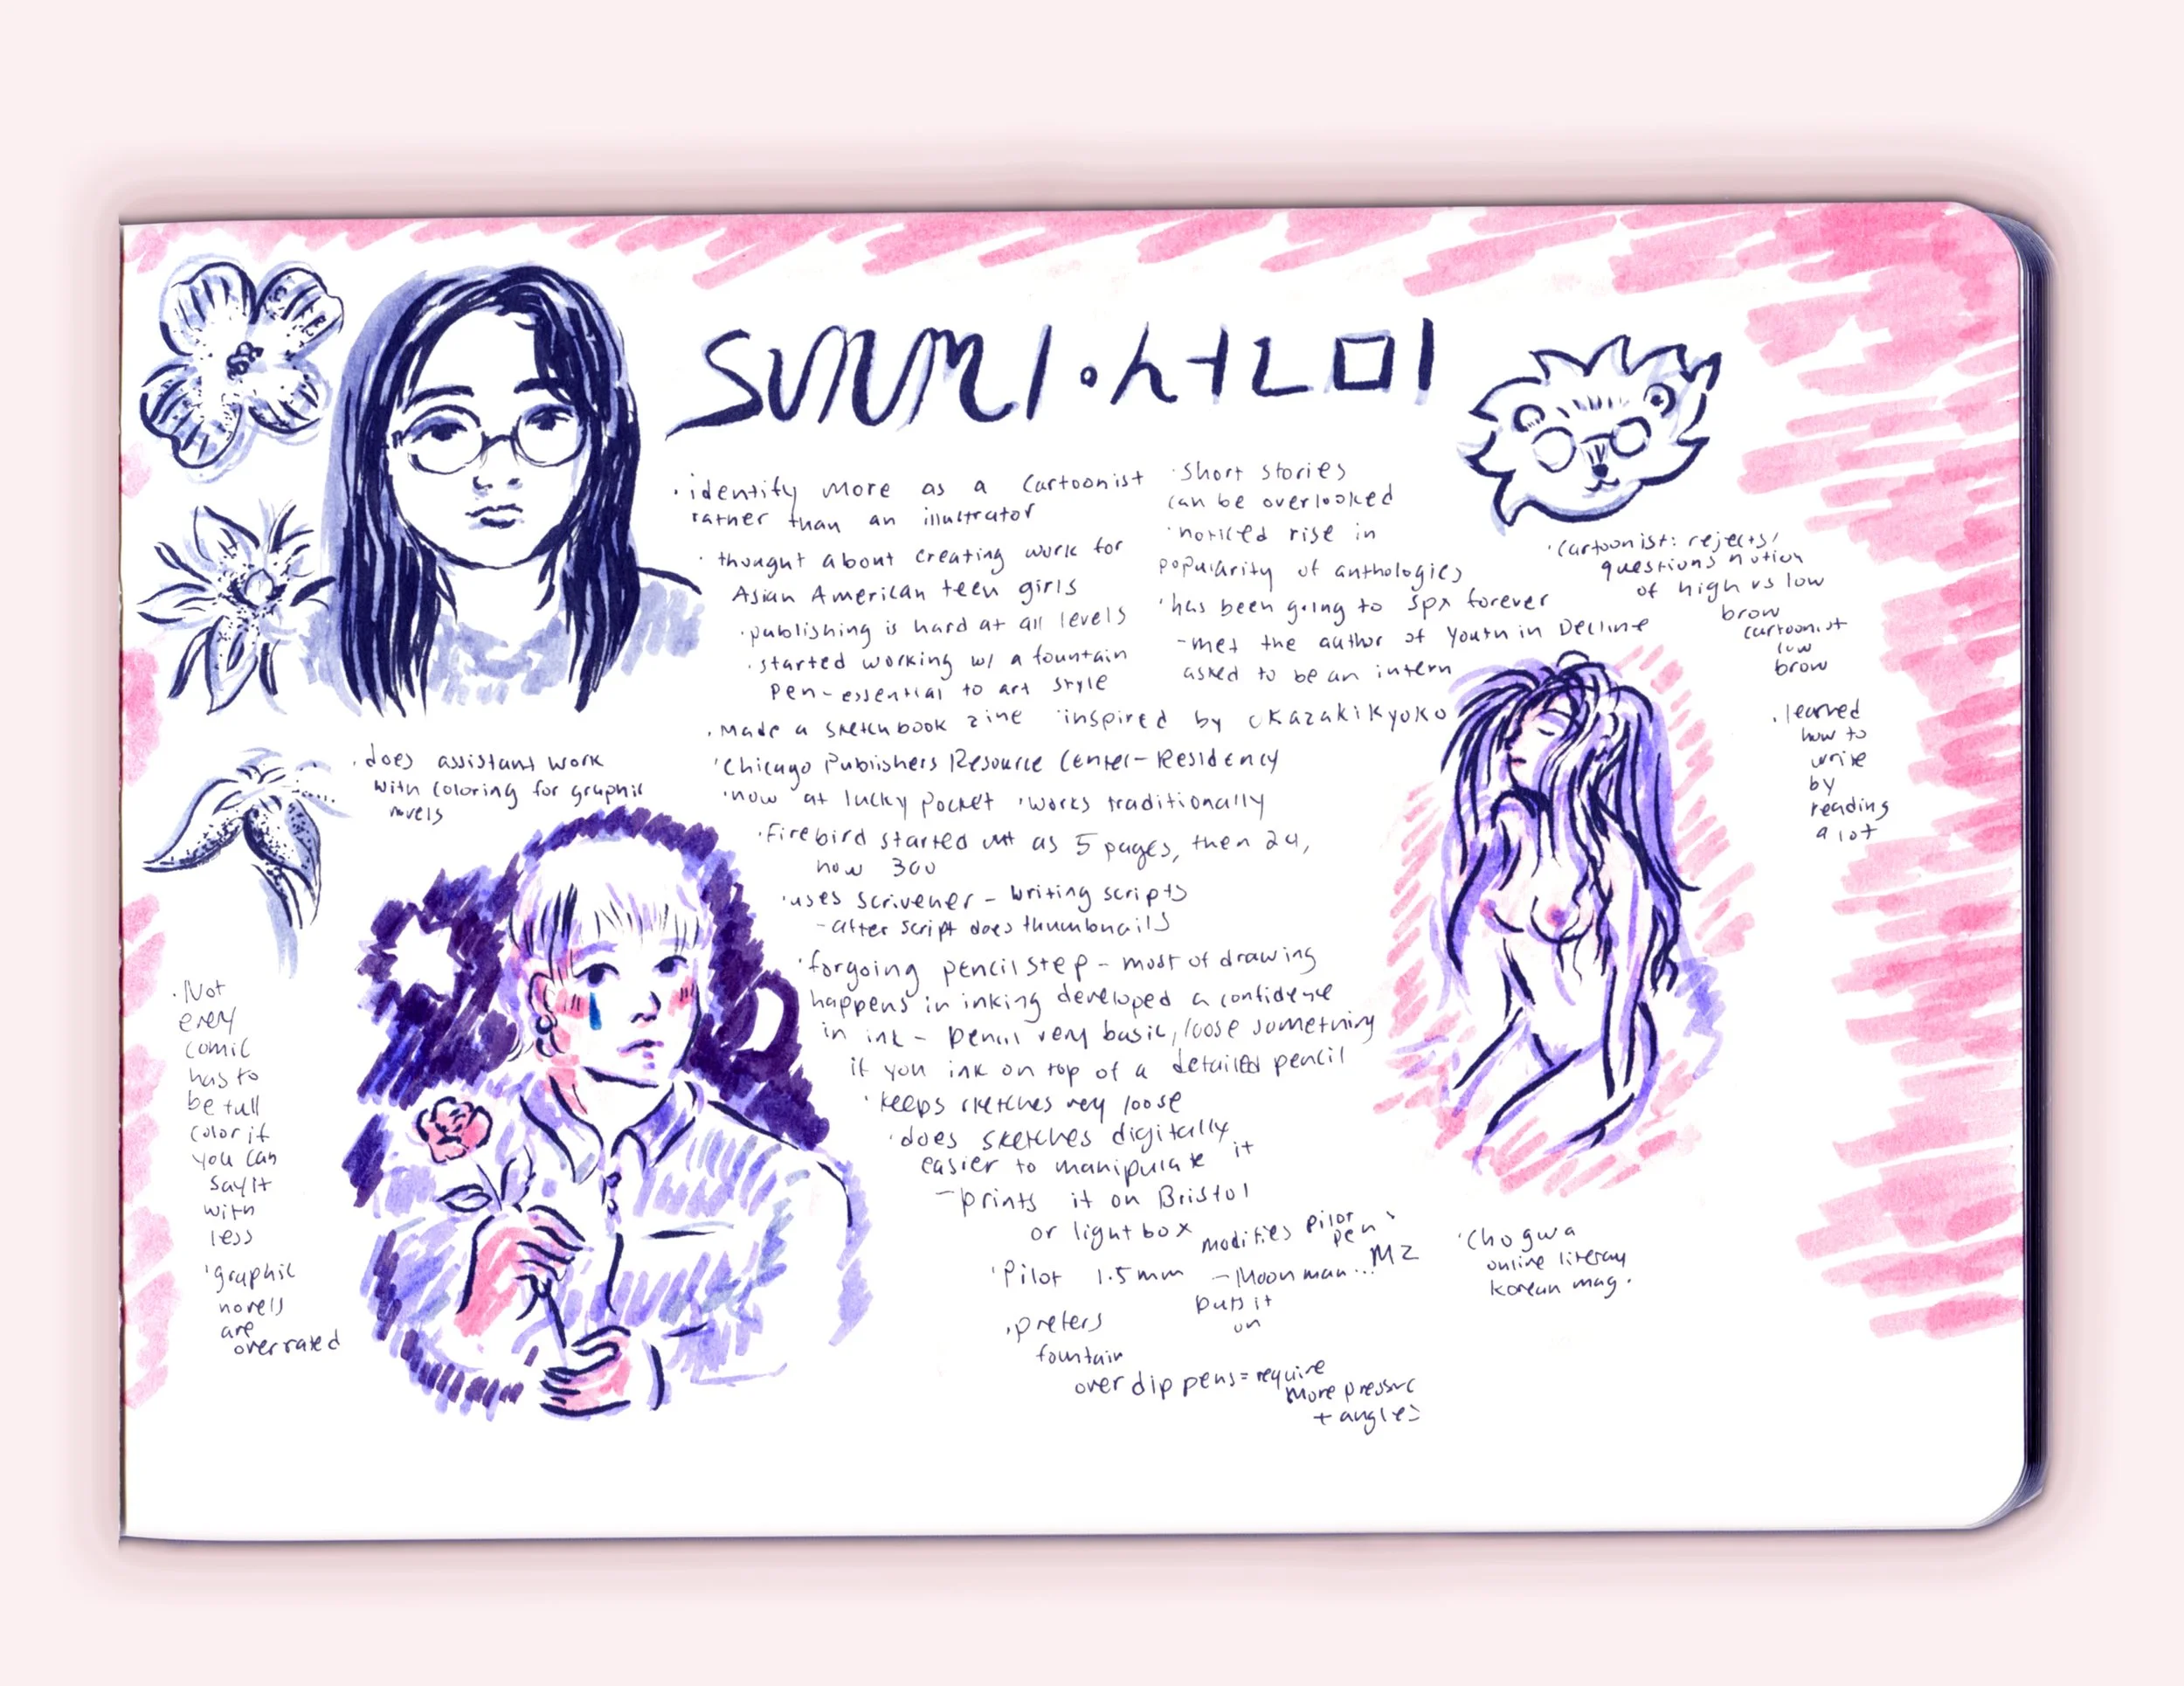 SUNMI · ㅅㅓㄴㅁㅣ
· identify more as a cartoonist
rather than an illustrator
· thought about creating work for
Asian American teen girls
· publishing is hard at all levels
· started working w/ a fountain
pen - essential to art style
· Made a sketchbook zine inspired by Okazaki Kyoko
· Chicago Publishers Resource Center - Residency
· now at lucky pocket · works traditionally
· Firebird started out as 5 pages, then 24,
now 300
· uses scrivener - writing scripts
- after script does thumbnails
· forgoing pencil step - most of drawing
happens in inking developed a confidence
in ink - pencil very basic, loose something
if you ink on top of a detailed pencil
· keeps sketches very loose
· does sketches digitally
easier to manipulate it
- prints it on Bristol
or light box
modifies pilot
pen
· Pilot 1.5mm - Moonman... M2
puts it
on
· prefers
fountain
over dip pens = require
more pressure
+ angles
· short stories
can be overlooked
· noticed rise in
popularity of anthologies
· has been going to spx forever
- met the author of Youth in Decline
asked to be an intern
· cartoonist: rejects/
questions notion
of high vs low
brow
cartoonist
low
brow
· learned
how to
write
by
reading
a lot
· Chogwa
online literary
korean mag.
· does assistant work
with coloring for graphic
novels
· Not
every
comic
has to
be full
color if
you can
say it
with
less
· graphic
novels
are
overrated